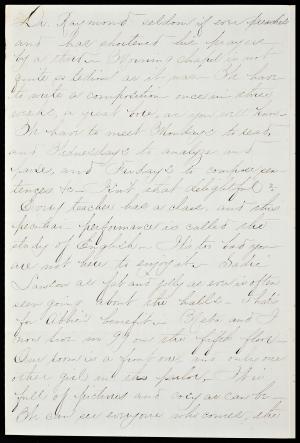 Dr. Raymond seldom if ever preaches
and has shortened his prayers
by a third. Morning chapel is not
quite as tedious as it was. We have
to write a composition once in three
weeks, a great bore, as you well know.
We have to meet Mondays to read,
and Wednesdays to analyze and
parse, and Fridays to compose sen-
tences &c. Isn't that delightful?
Every teacher has a class, and this
peculiar performance is called the
study of English. It's too bad you
are not here to enjoy it. Sadie
as fat and jolly as ever is often
seen going about the halls. That's
for Abbie's benefit. and I
now live in 9 on the fifth floor.
Our room is a front one and only one
other girl in the parlor. It is
full of pictures and cosy as can be.
We can see everyone who comes, the